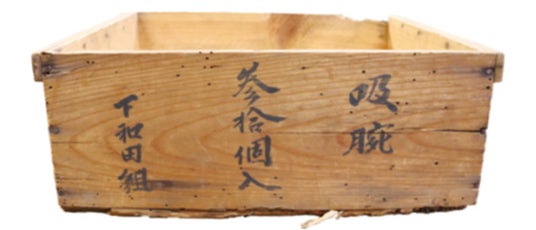 吸腕
参拾個入
下和田組